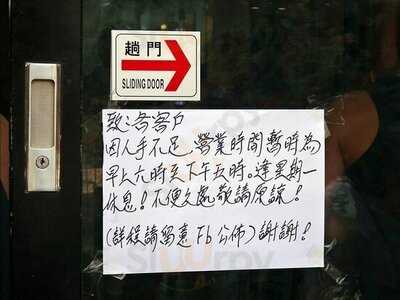 趟門
SLIDING DOOR
致：各客戶
因人手不足，營業時間暫時為
早上六時至下午五時。逢星期一
休息！不便之處敬請原諒！
(詳程請留意 Fb 公佈) 謝謝！